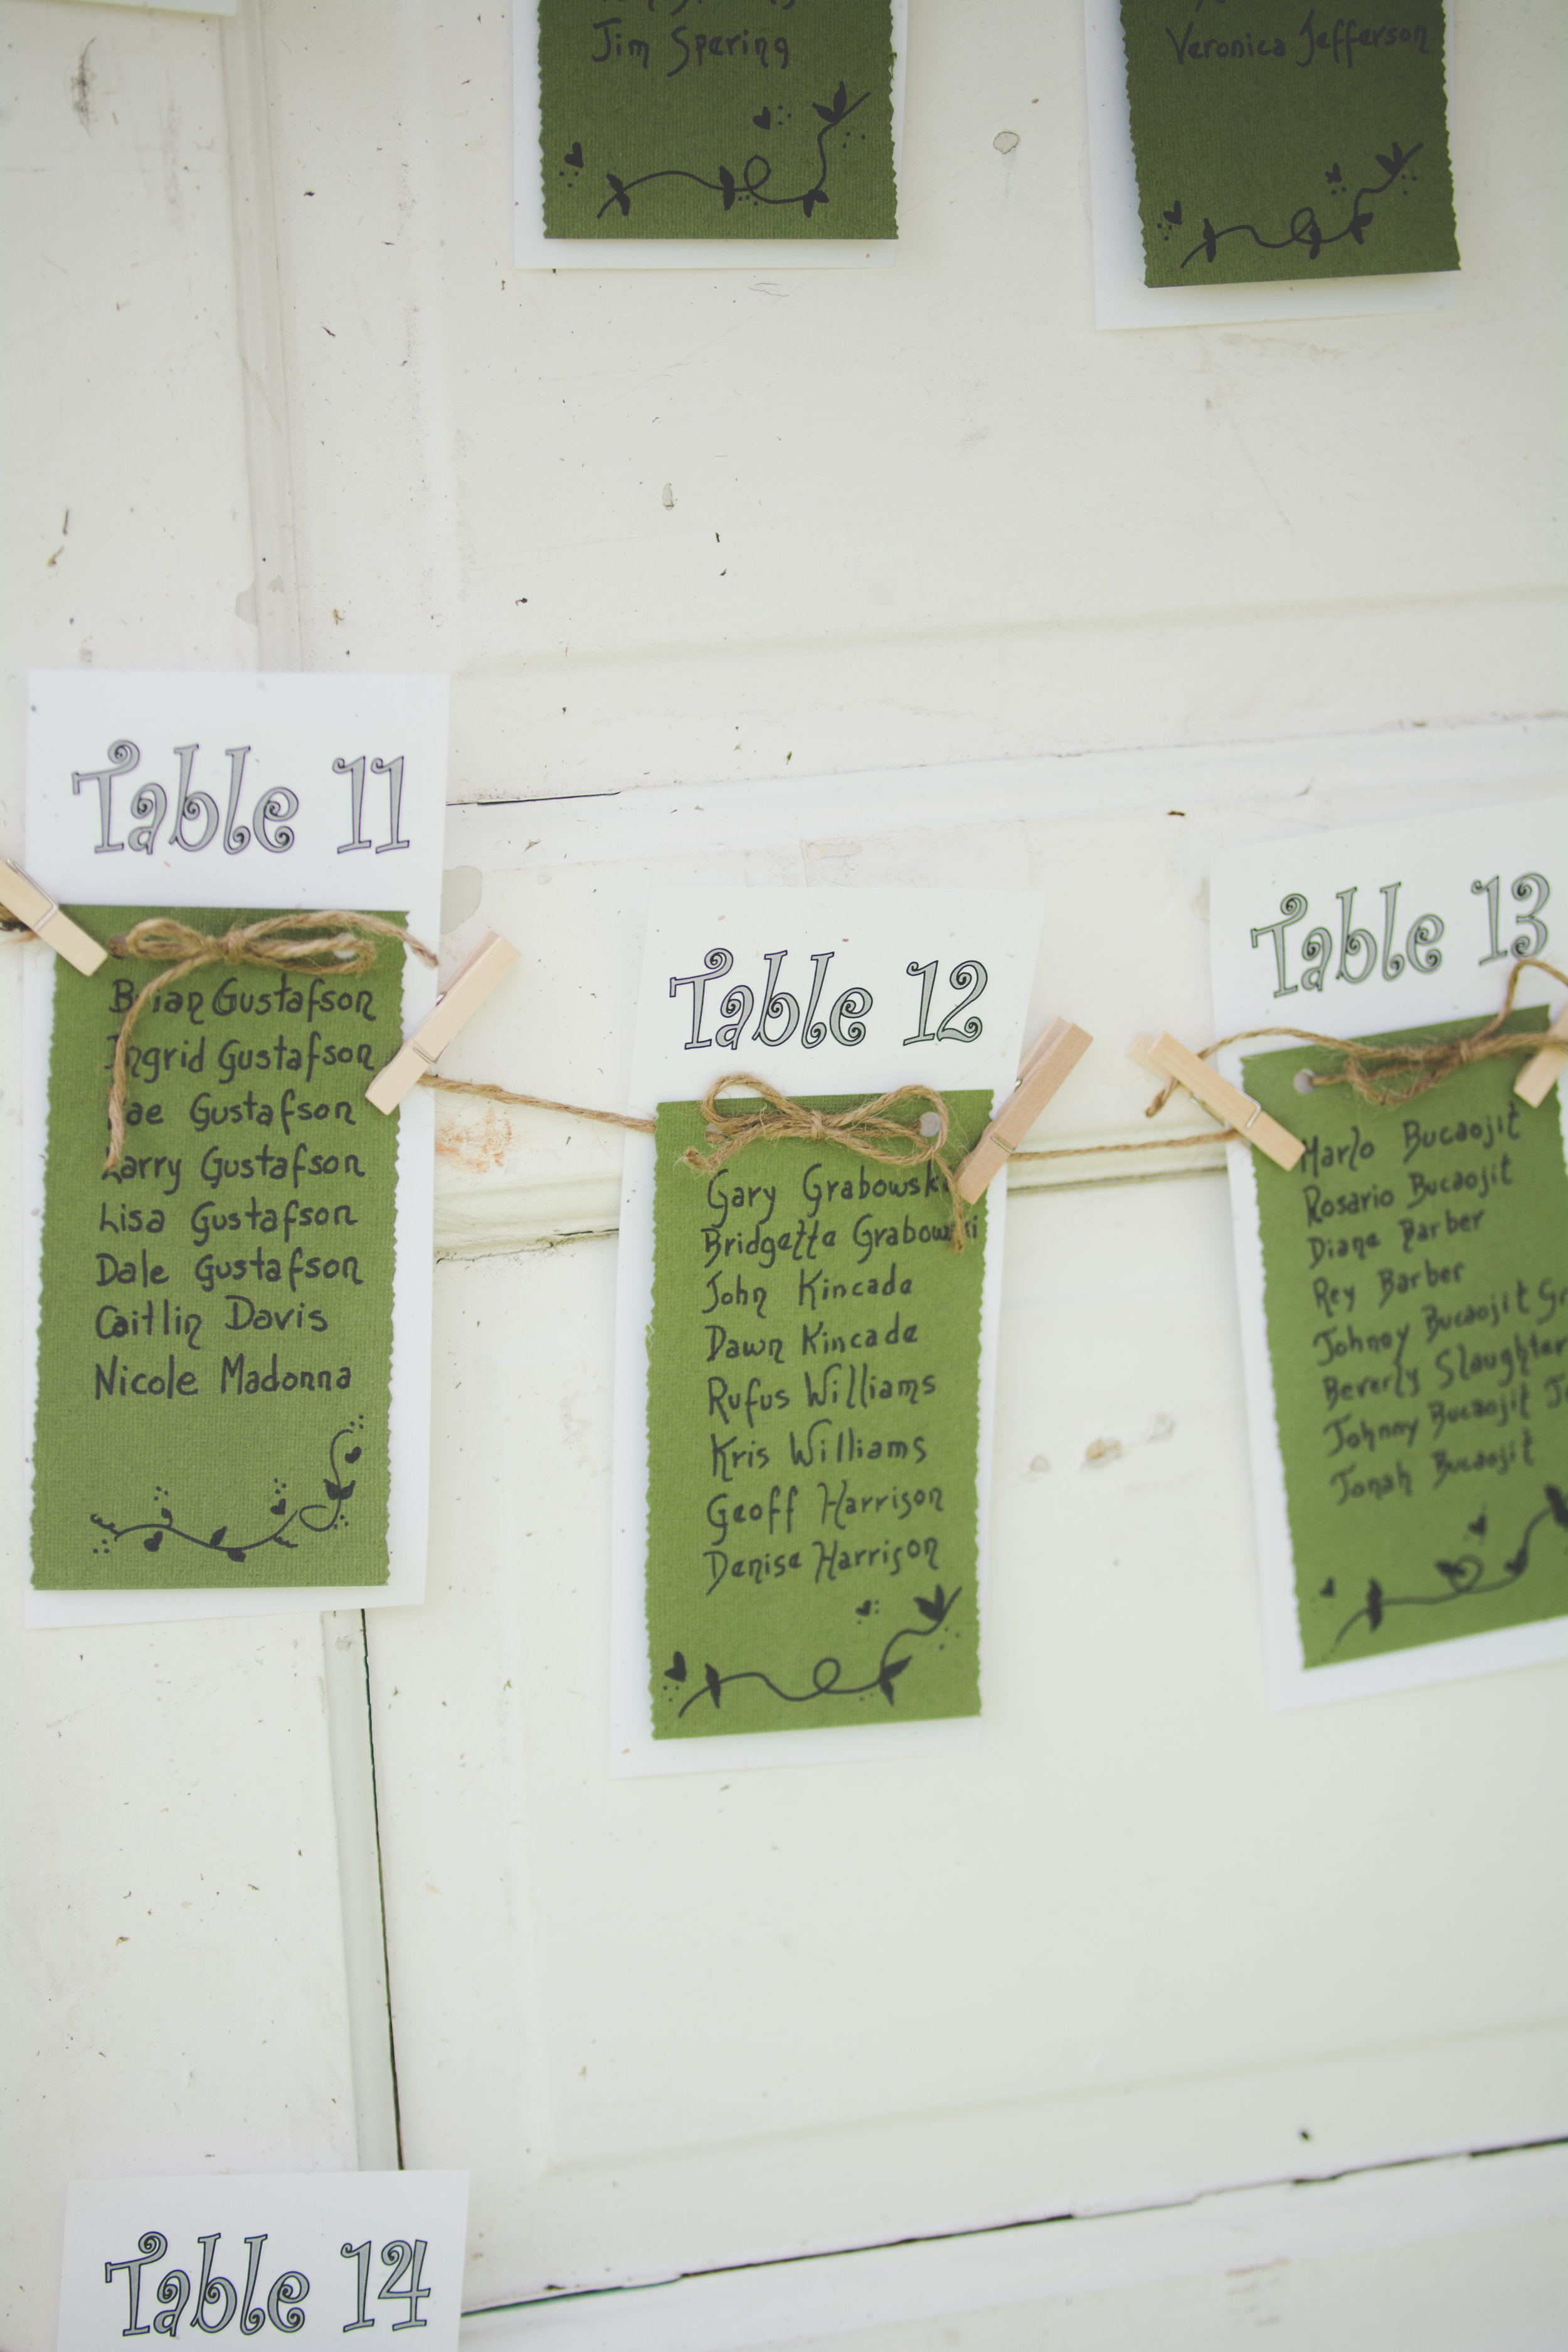 Jim Spering
Veronica Jefferson
Table 11
Brian Gustafson
Ingrid Gustafson
Gustafson
Larry Gustafson
Lisa Gustafson
Dale Gustafson
Caitlin Davis
Nicole Madonna
Table 12
Gary Grabowski
Bridgette Grabowski
John Kincade
Dawn Kincade
Rufus Williams
Kris Williams
Geoff Harrison
Denise Harrison
Table 13
Marlo Bucaojit
Rosario Bucaojit
Diane Barber
Rey Barber
Johnny Bucaojit
Beverly Slaughter
Johnny Bucaojit
Jonah Bucaojit
Table 14